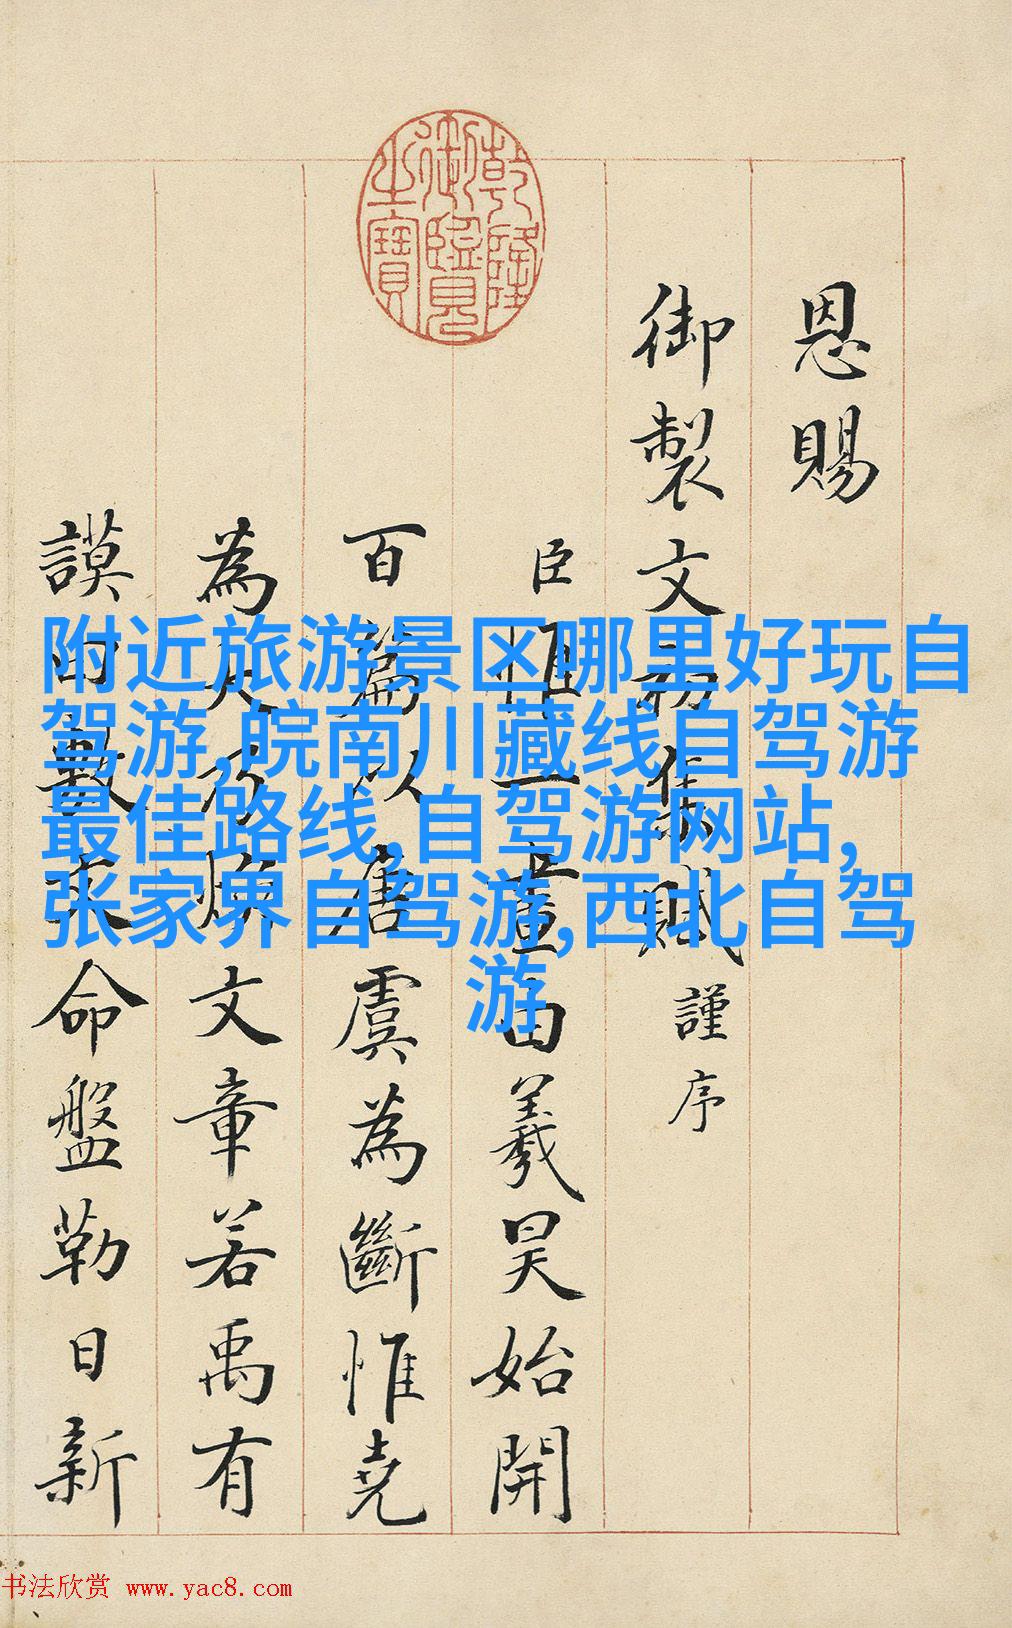 乾隆御覽之寶
恩賜
御製文初集賦謹序
臣惟一畫由羲昊始開
百篇以唐虞為斷惟堯
為大乃煥文章若禹有
謨敷命盤勒日新
附近旅游景区哪里好玩自
驾游,皖南川藏线自驾游
最佳路线,自驾游网站,
张家界自驾游,西北自驾
游
书法欣赏 www.yac8.com